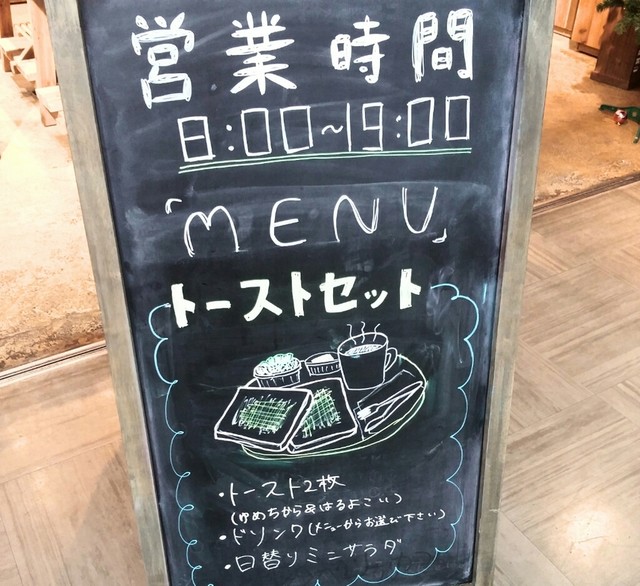 営業時間
8:00~19:00
「MENU」
トーストセット
・トースト2枚
(ゆめちから&はるよこい)
・ドリンク(メニューからお選び下さい)
・日替りミニサラダ